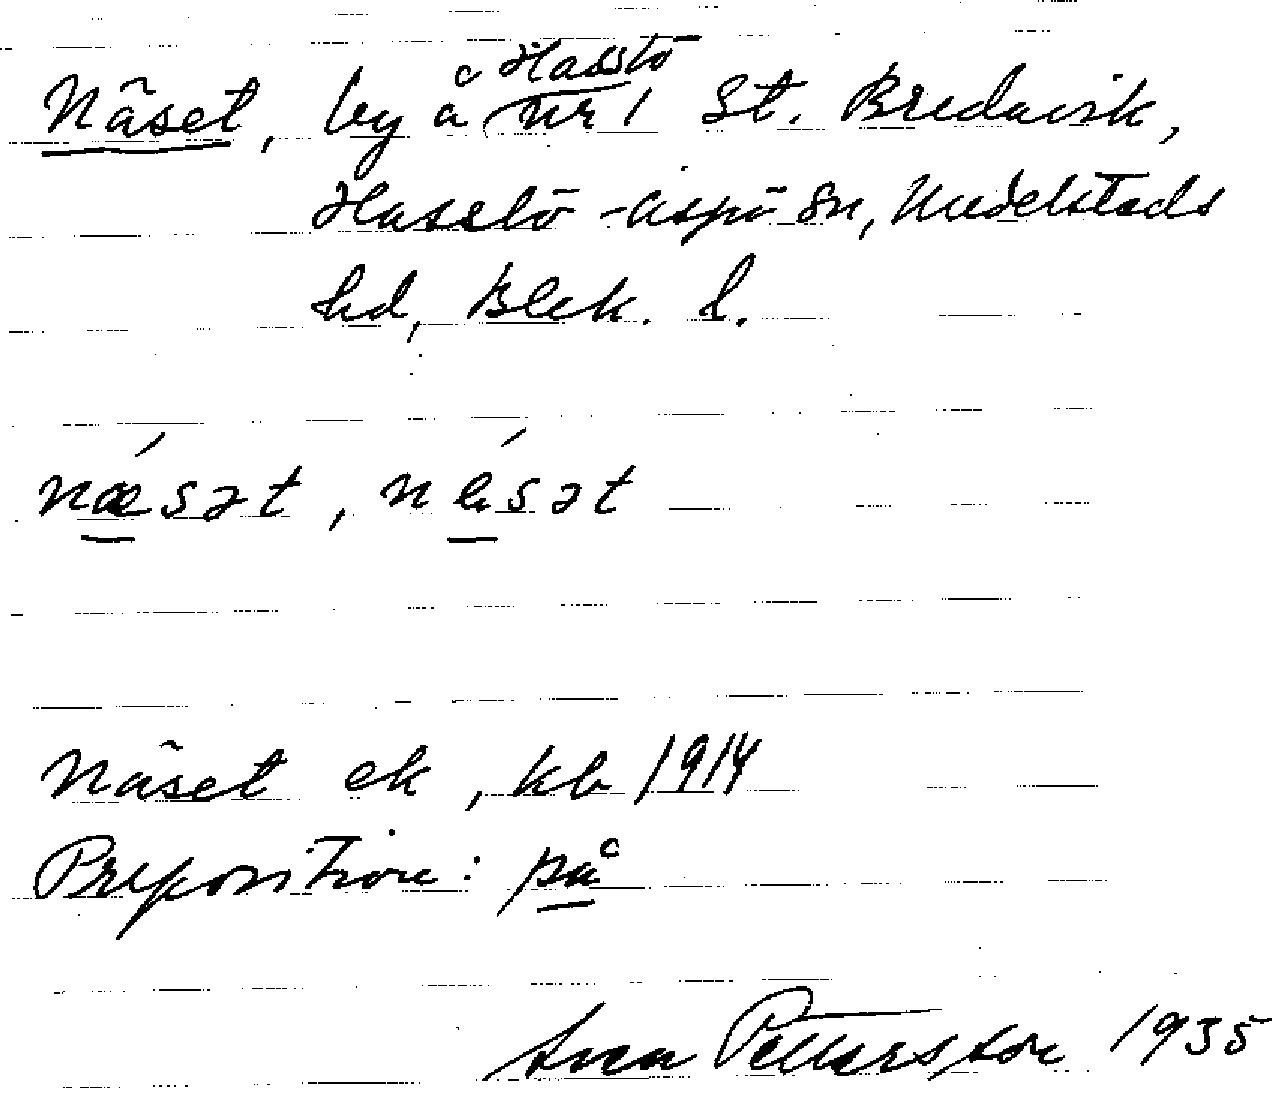 Näset, by å Hasslö nr 1 St. Bredavik,
Hasslö-Aspö sn, Medelstads
hd, Blek. l.
næ´sət, nè´sət
Näset ek, kb 1914
Preposition: på
Sven Pettersson 1935